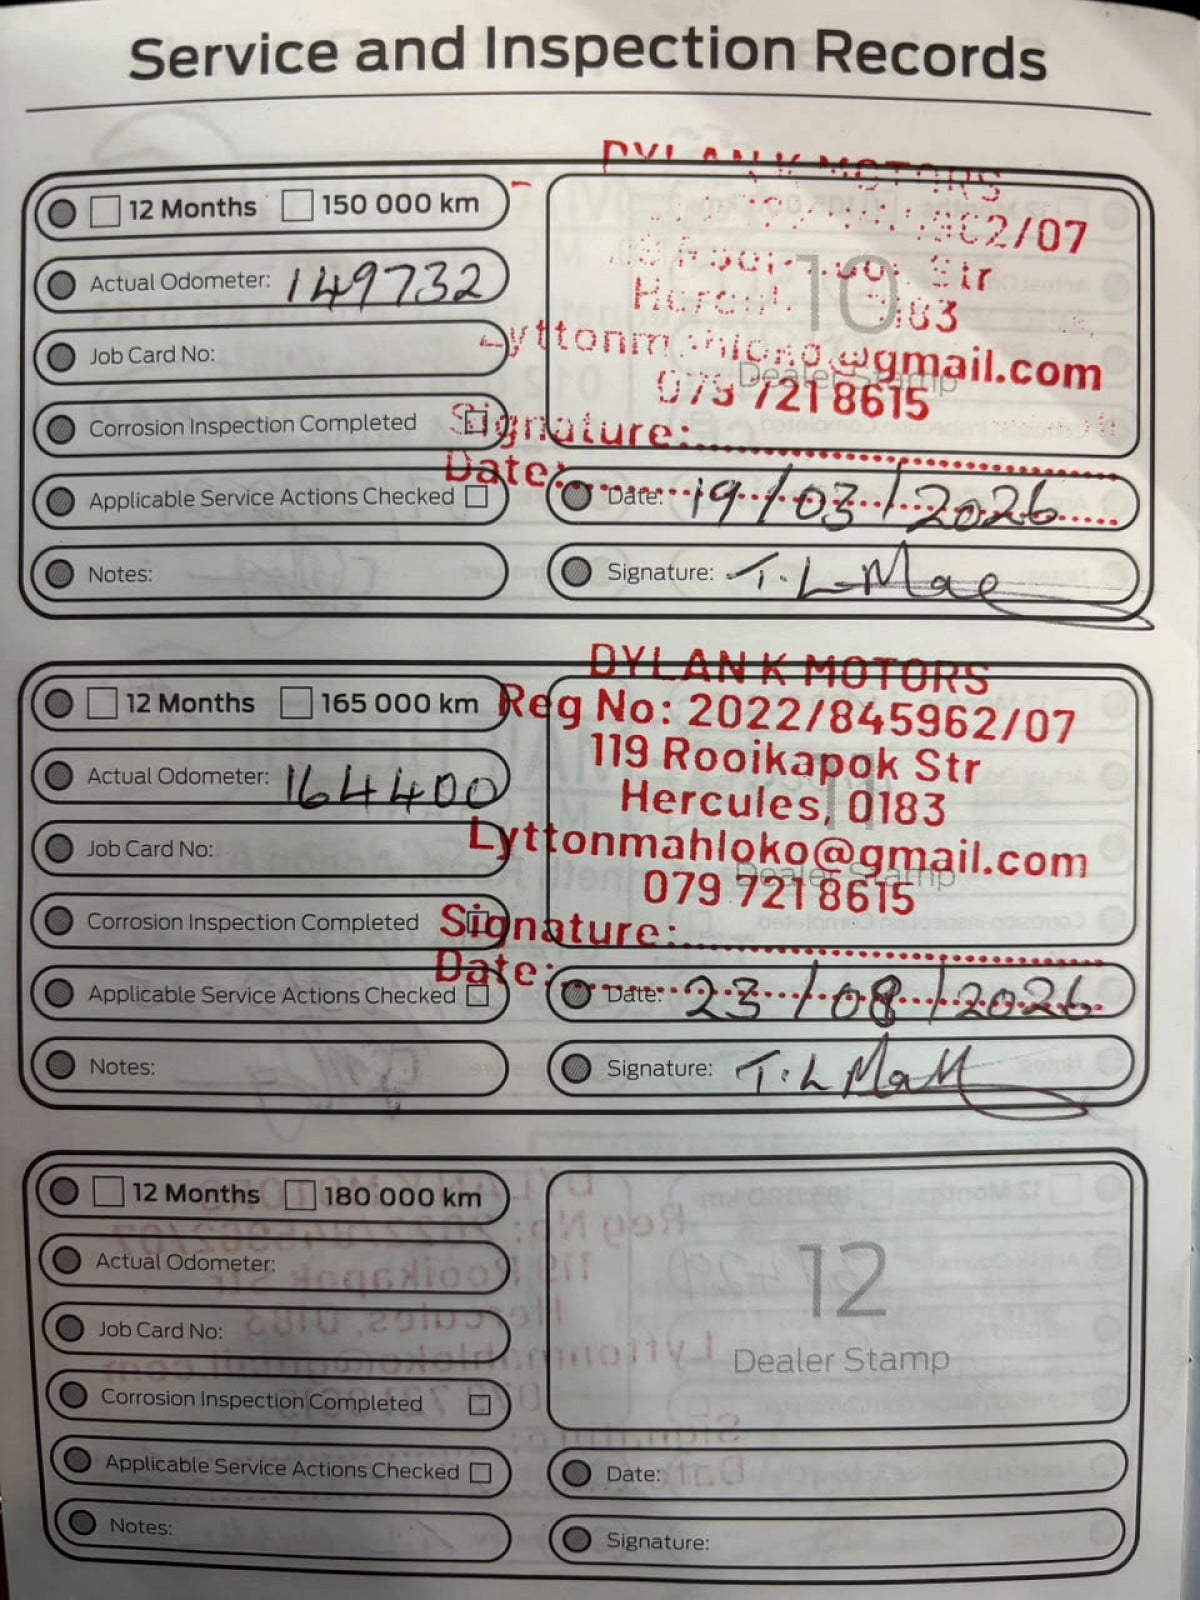 Service and Inspection Records
DYLAN K MOTORS
12 Months 150 000 km
962/07
Actual Odometer: 149732
Str
10
0183
Job Card No:
@gmail.com
Dealer Stamp
079 7218615
Corrosion Inspection Completed
Signature:
Date:
Applicable Service Actions Checked
Date: 19/03/2026
Notes:
Signature: T.L
DYLAN K MOTORS
12 Months 165 000 km
Reg No: 2022/845962/07
119 Rooikapok Str
Actual Odometer: 164400
Hercules, 0183
11
Job Card No:
Lyttonmahloko@gmail.com
Dealer Stamp
079 7218615
Corrosion Inspection Completed
Signature:
Date:
Applicable Service Actions Checked
Date: 23/08/2026
Notes:
Signature: T.L
12 Months 180 000 km
Actual Odometer:
12
Job Card No:
Dealer Stamp
Corrosion Inspection Completed
Applicable Service Actions Checked
Date:
Notes:
Signature: